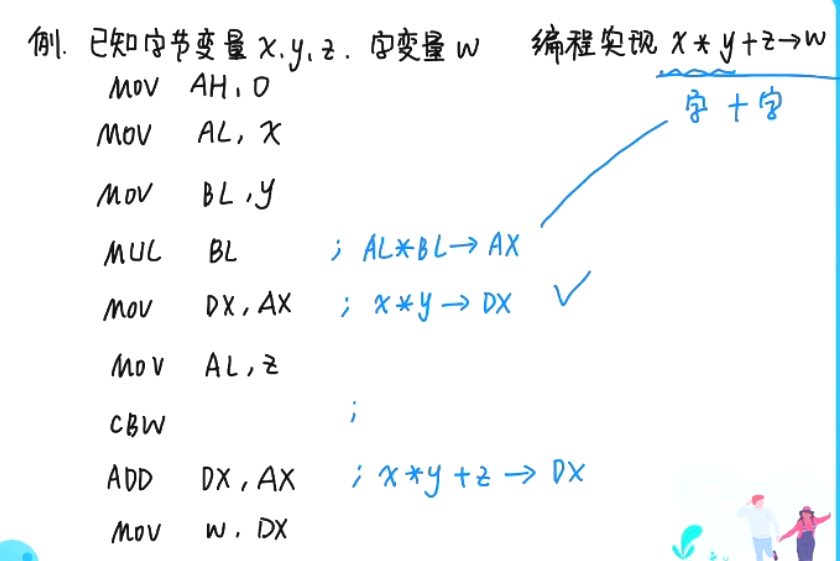 例. 已知字节变量 x, y, z. 字变量 w 编程实现 x * y + z → w
MOV AH, 0 字 + 字
MOV AL, x
MOV BL, y
MUL BL ; AL*BL → AX
MOV DX, AX ; x*y → DX ✓
MOV AL, z
CBW ;
ADD DX, AX ; x*y+z → DX
MOV w. DX